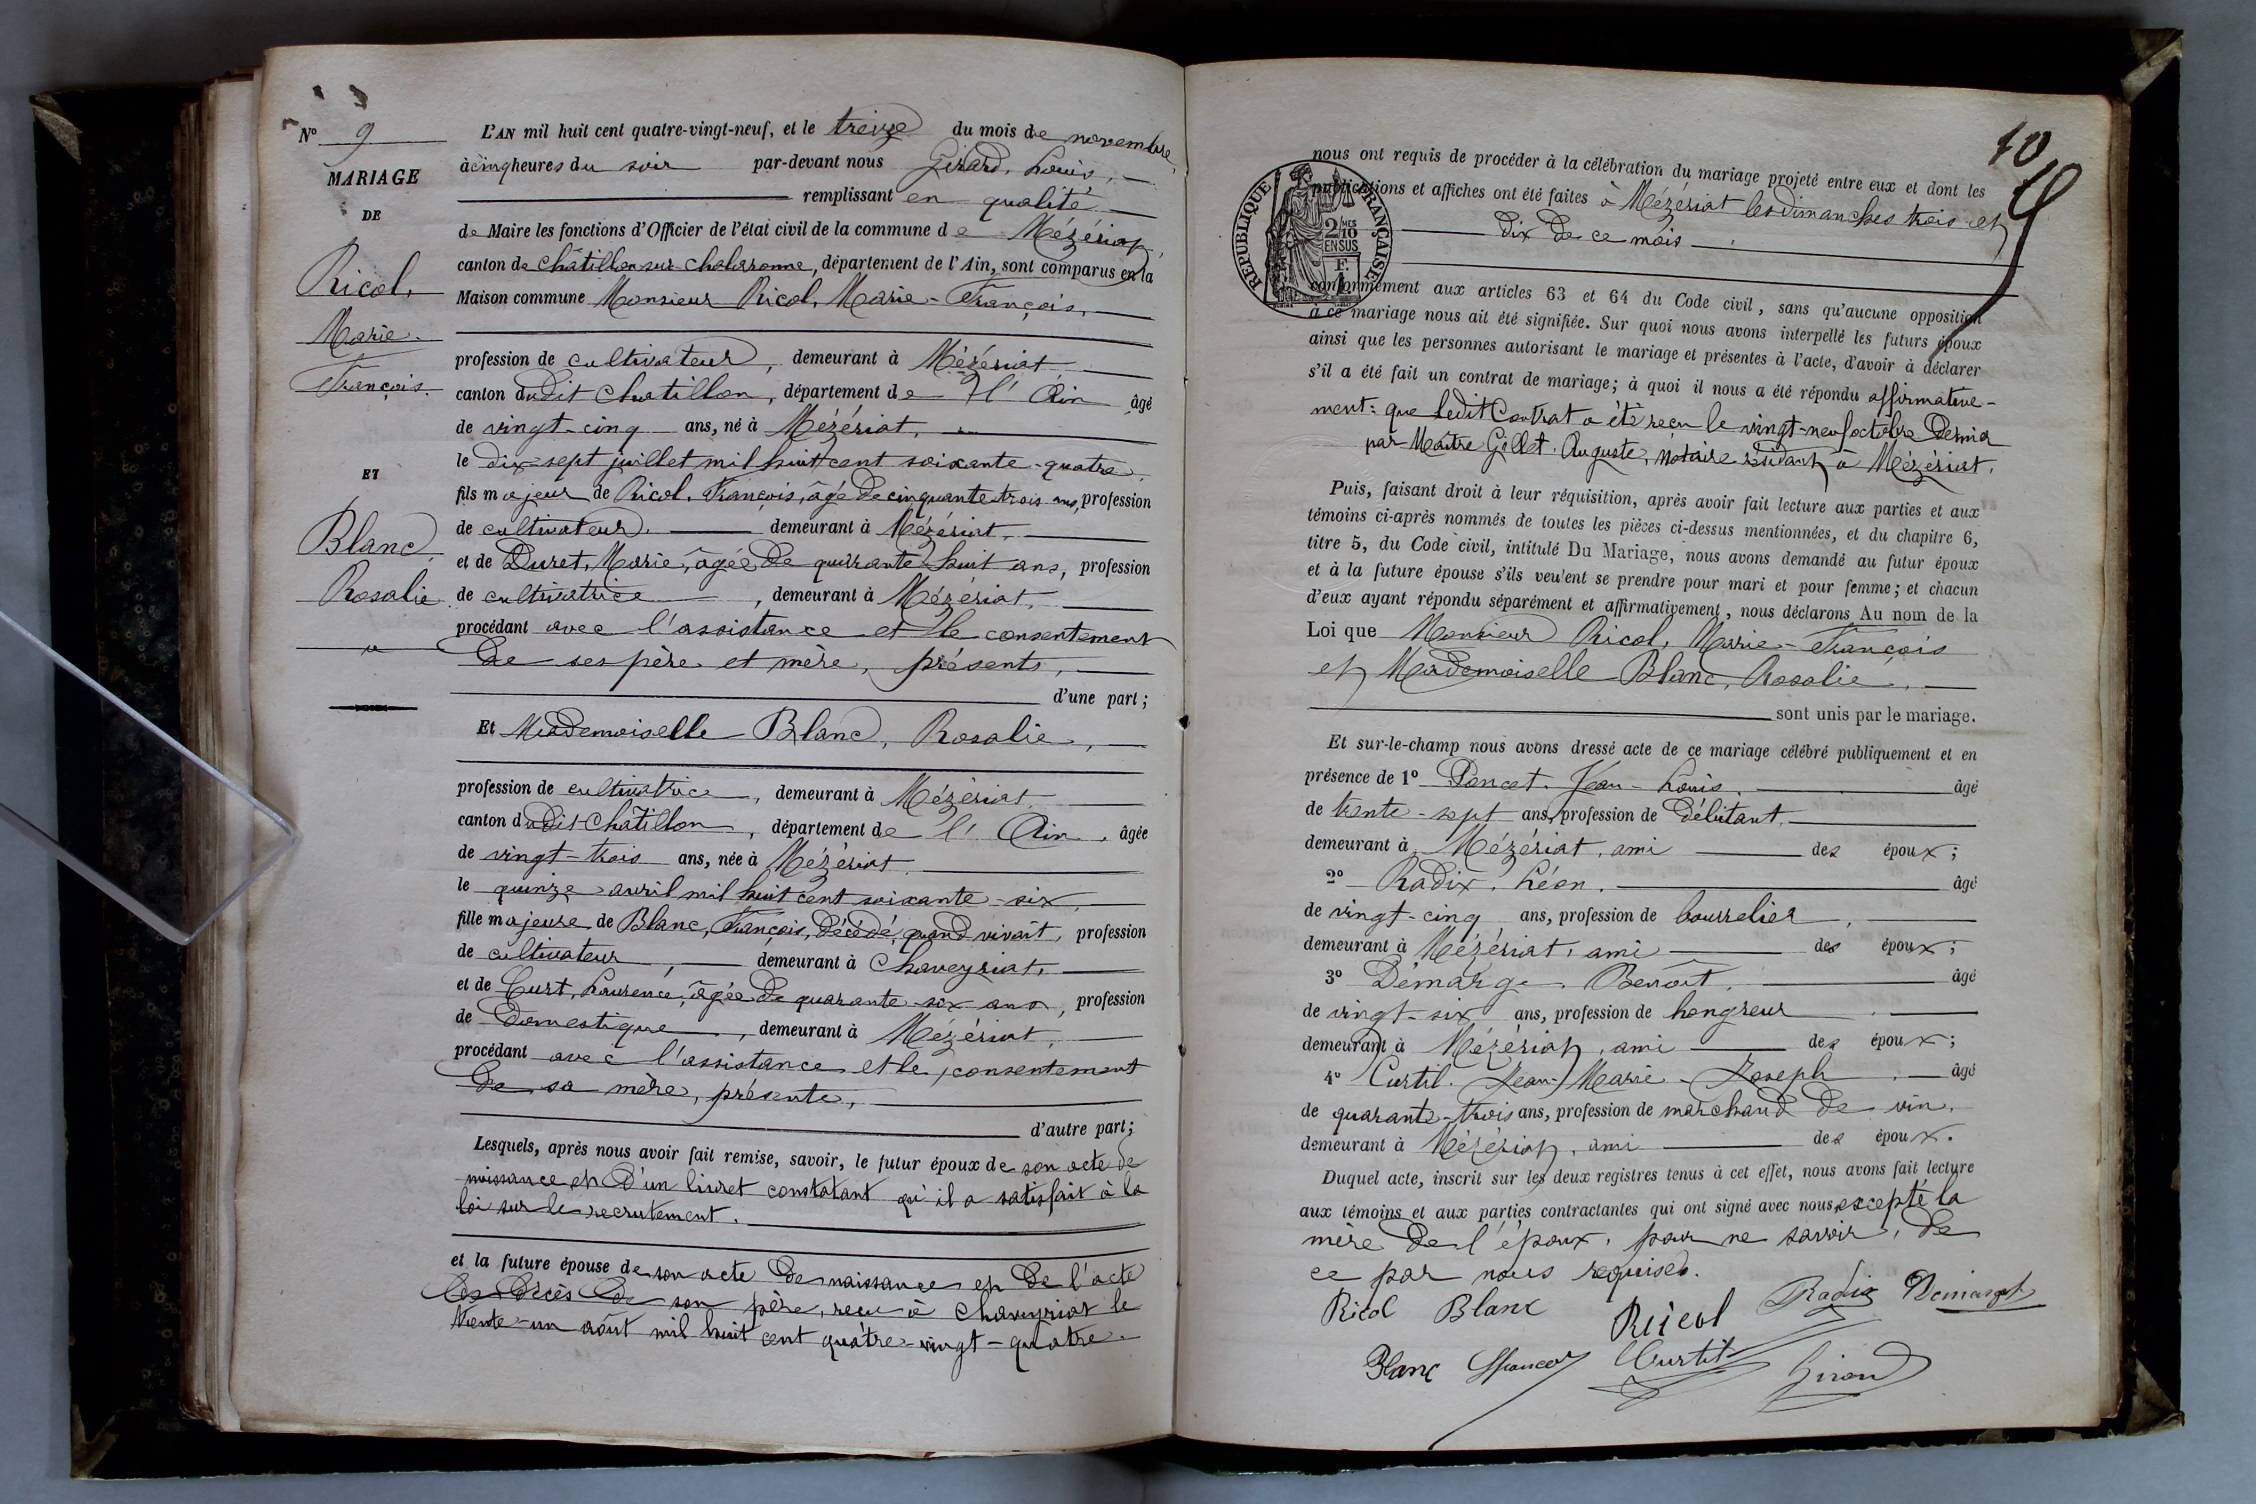 N° 9
MARIAGE
DE
Ricol,
Marie-
François.
ET
Blanc,
Rosalie
"
L'AN mil huit cent quatre-vingt-neuf, et le treize du mois de novembre,
à cinq heures du soir par-devant nous Girard, Louis,
remplissant en qualité
de Maire les fonctions d'Officier de l'état civil de la commune de Mézériat,
canton de Châtillon-sur-Chalaronne, département de l'Ain, sont comparus en la
Maison commune Monsieur Ricol, Marie-François,
profession de cultivateur, demeurant à Mézériat
canton dudit Chatillon, département de l'Ain âgé
de vingt-cinq ans, né à Mézériat,
le dix-sept juillet mil huit cent soixante-quatre,
fils majeur de Ricol, François, âgé de cinquante-trois ans, profession
de cultivateur, demeurant à Mézériat,
et de Duret, Marie, âgée de quarante-huit ans, profession
de cultivatrice, demeurant à Mézériat,
procédant avec l'assistance et le consentement
de ses père et mère, présents,
d'une part;
Et Mademoiselle Blanc, Rosalie,
profession de cultivatrice, demeurant à Mézériat
canton dudit Châtillon, département de l'Ain, âgée
de vingt-trois ans, née à Mézériat
le quinze avril mil huit cent soixante-six,
fille majeure de Blanc, François, décédé, quand vivait, profession
de cultivateur, demeurant à Chaveyriat,
et de Curt, Laurence, âgée de quarante-six ans, profession
de Domestique, demeurant à Mézériat,
procédant avec l'assistance et le consentement
de sa mère, présente,
d'autre part;
Lesquels, après nous avoir fait remise, savoir, le futur époux de son acte de
naissance et d'un livret constatant qu'il a satisfait à la
loi sur le recrutement.
et la future épouse de son acte de naissance et de l'acte
de décès de son père, reçu à Chaveyriat le
trente-un août mil huit cent quatre-vingt-quatre.
10
nous ont requis de procéder à la célébration du mariage projeté entre eux et dont les
publications et affiches ont été faites à Mézériat les dimanches trois et
dix de ce mois
RÉPUBLIQUE FRANÇAISE
2/10 MES
EN SUS
F.
1
conformément aux articles 63 et 64 du Code civil, sans qu'aucune opposition
à ce mariage nous ait été signifiée. Sur quoi nous avons interpellé les futurs époux
ainsi que les personnes autorisant le mariage et présentes à l'acte, d'avoir à déclarer
s'il a été fait un contrat de mariage; à quoi il nous a été répondu affirmative-
ment: que ledit Contrat a été reçu le vingt-neuf octobre dernier
par Maître Gillet, Auguste, notaire résidant à Mézériat.
Puis, faisant droit à leur réquisition, après avoir fait lecture aux parties et aux
témoins ci-après nommés de toutes les pièces ci-dessus mentionnées, et du chapitre 6,
titre 5, du Code civil, intitulé Du Mariage, nous avons demandé au futur époux
et à la future épouse s'ils veulent se prendre pour mari et pour femme; et chacun
d'eux ayant répondu séparément et affirmativement, nous déclarons Au nom de la
Loi que Monsieur Ricol, Marie-François
et Mademoiselle Blanc, Rosalie,
sont unis par le mariage.
Et sur-le-champ nous avons dressé acte de ce mariage célébré publiquement et en
présence de 1° Poncet, Jean-Louis, âgé
de trente-sept ans, profession de Débitant
demeurant à Mézériat, ami des époux;
2° Radix, Léon. âgé
de vingt-cinq ans, profession de bourrelier,
demeurant à Mézériat, ami des époux;
3° Démarge, Benoît, âgé
de vingt-six ans, profession de hongreur
demeurant à Mézériat, ami des époux;
4° Curtil, Jean-Marie-Joseph, âgé
de quarante-trois ans, profession de marchand de vin,
demeurant à Mézériat, ami des époux.
Duquel acte, inscrit sur les deux registres tenus à cet effet, nous avons fait lecture
aux témoins et aux parties contractantes qui ont signé avec nous, excepté la
mère de l'époux, pour ne savoir, de
ce par nous requises.
Ricol Blanc Ricol Radix Demarge
Blanc Curtil Girard